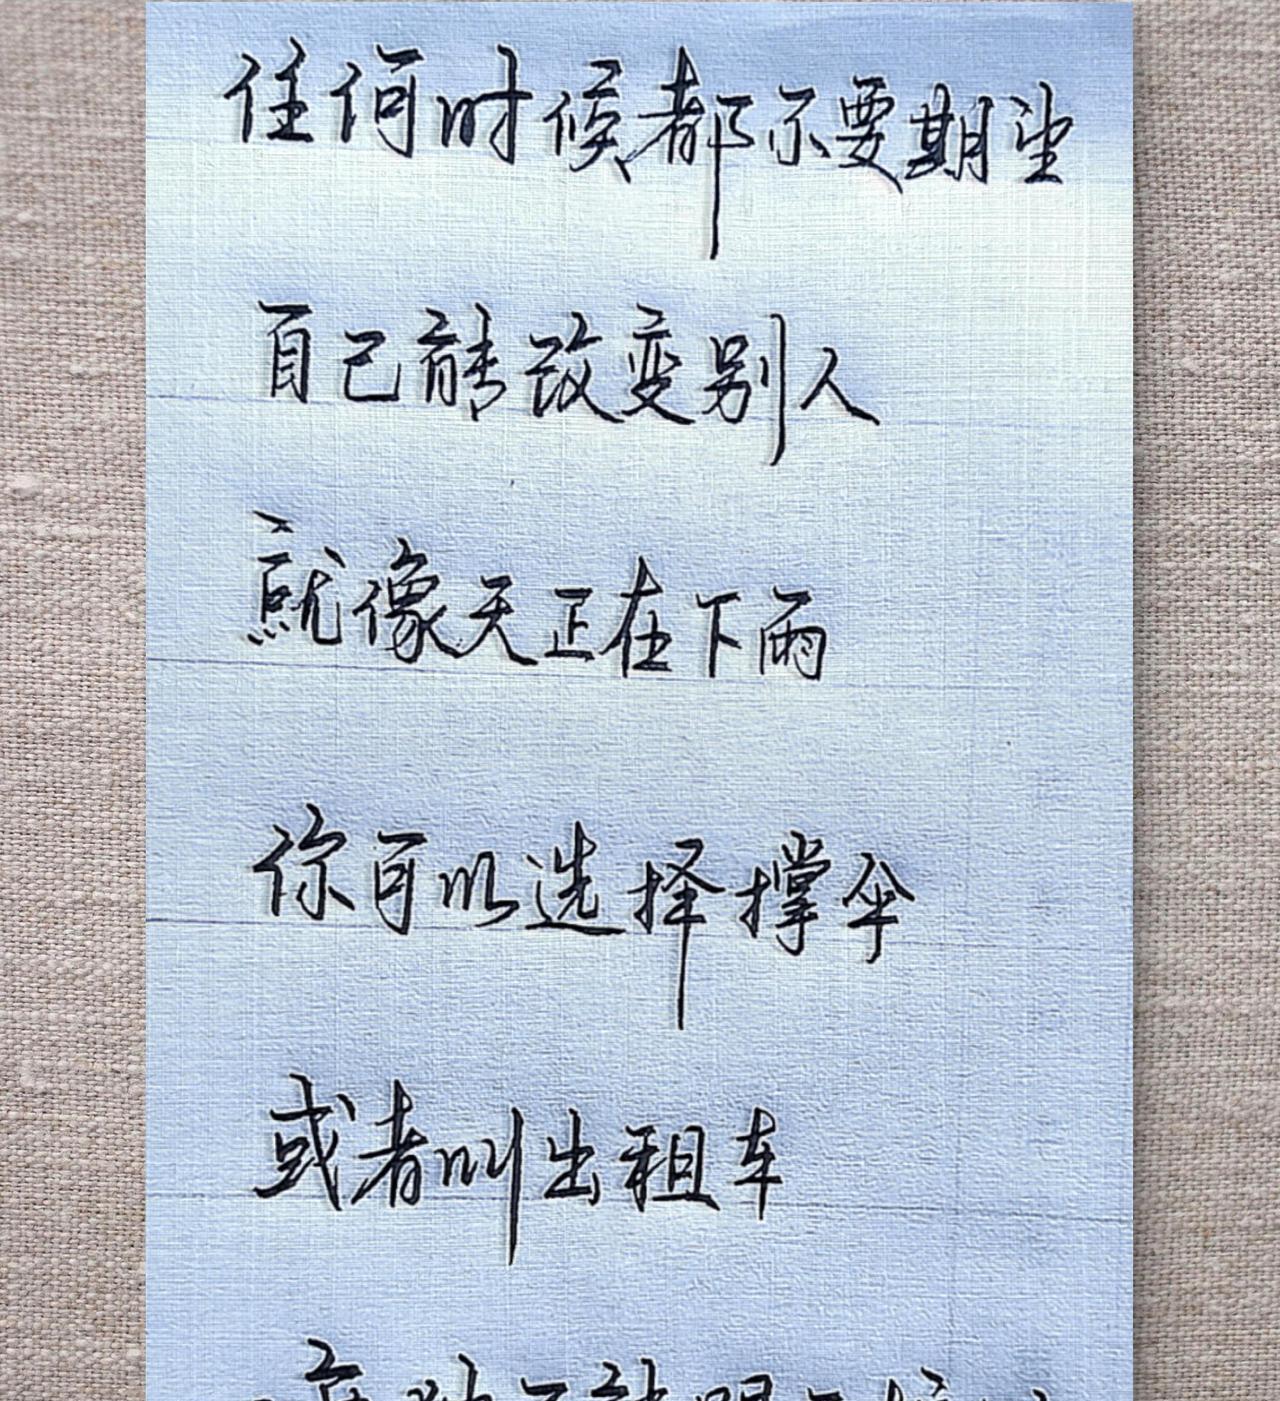 任何时候都不要期望
自己能改变别人
就像天正在下雨
你可以选择撑伞
或者叫出租车